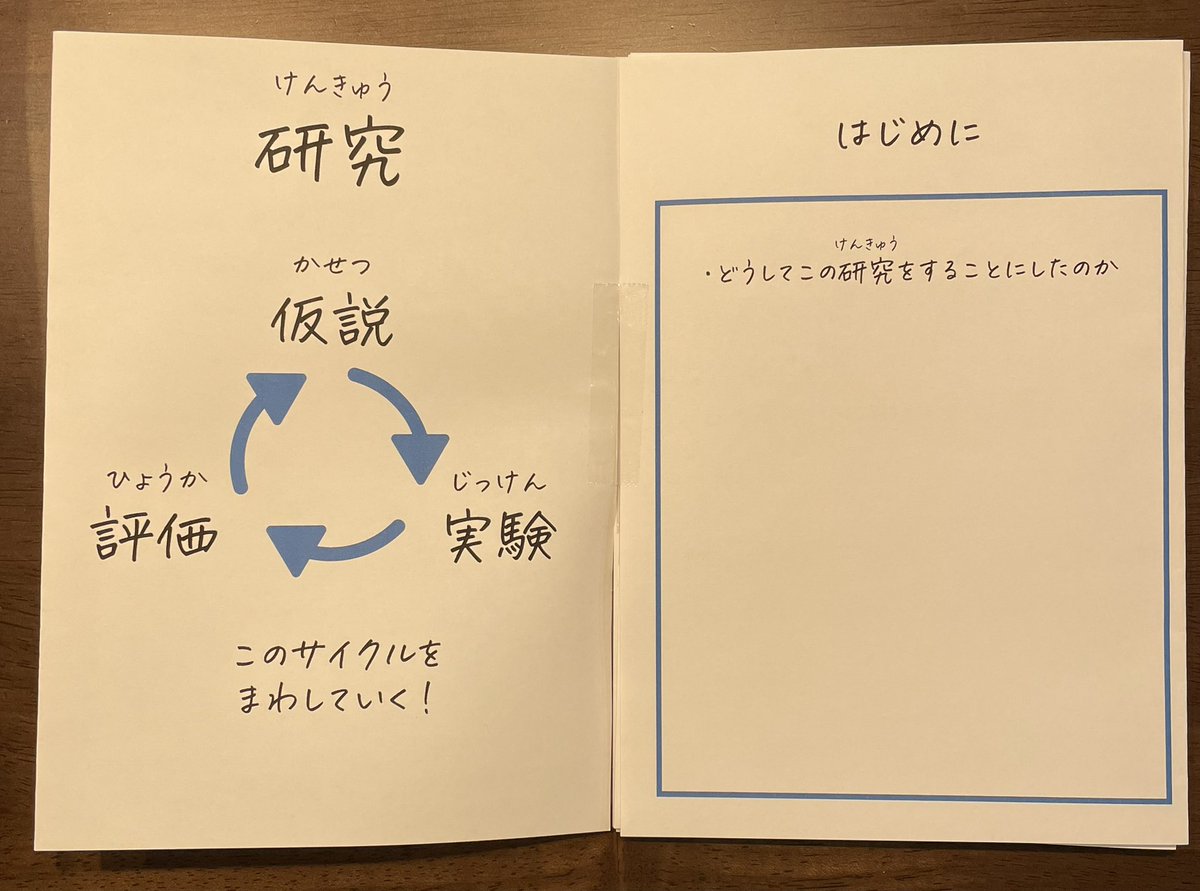 けんきゅう
研究
かせつ
仮説
ひょうか
評価
じっけん
実験
このサイクルを
まわしていく！
はじめに
けんきゅう
・どうしてこの研究をすることにしたのか